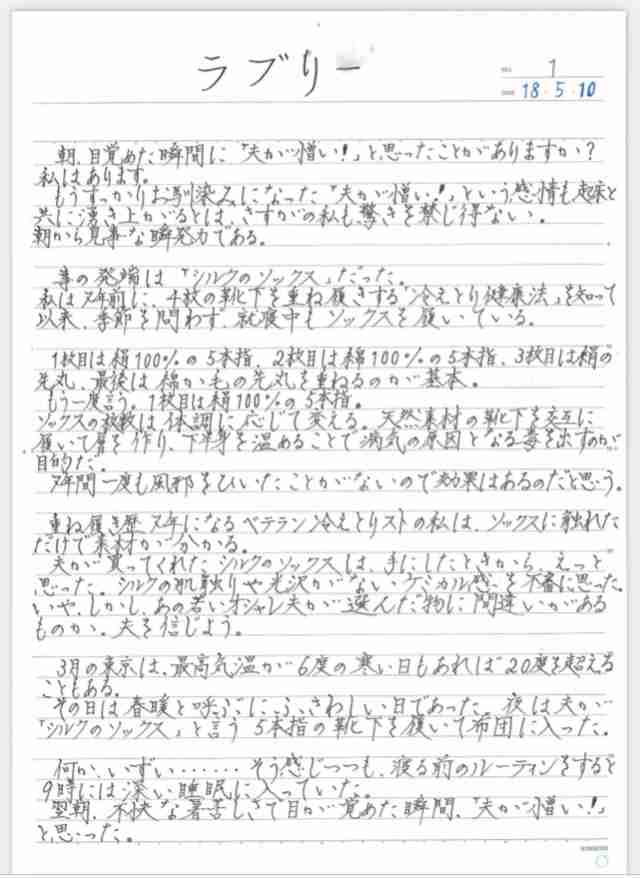 ラブリー
1
18・5・10
朝、目覚めた瞬間に「夫が憎い!」と思ったことがありますか?
私はあります。
もうすっかりお馴染みになった「夫が憎い!」という感情も起床と
共に湧き上がるとは、さすがの私も驚きを禁じ得ない。
朝から見事な瞬発力である。
事の発端は「シルクのソックス」だった。
私は7年前に、4枚の靴下を重ね履きする「冷えとり健康法」を知って
以来、季節を問わず、就寝中もソックスを履いている。
1枚目は絹100%の5本指、2枚目は綿100%の5本指、3枚目は絹の
先丸、最後は綿か毛の先丸を重ねるのが基本。
もう一度言う。1枚目は絹100%の5本指。
ソックスの枚数は体調に応じて変える。天然素材の靴下を交互に
履いて層を作り、下半身を温めることで病気の原因となる毒を出すのが
目的だ。
7年間一度も風邪をひいたことがないので効果はあるのだと思う。
重ね履き歴7年になるベテラン冷えとりストの私は、ソックスに触れた
だけで素材が分かる。
夫が買ってくれたシルクのソックスは、手にしたときから、えっと
思った。シルクの肌触りや光沢がないケミカル感を不審に思った。
いや、しかし、あの若いオシャレ夫が選んだ物に間違いがある
ものか。夫を信じよう。
3月の東京は、最高気温が6度の寒い日もあれば20度を超える
こともある。
その日は春暖と呼ぶにふさわしい日であった。夜は夫が
「シルクのソックス」と言う5本指の靴下を履いて布団に入った。
何か、いずい・・・・・・・そう感じつつも、寝る前のルーティンをすると
9時には深い睡眠に入っていた。
翌朝、不快な暑苦しさで目が覚めた瞬間、「夫が憎い!」
と思った。